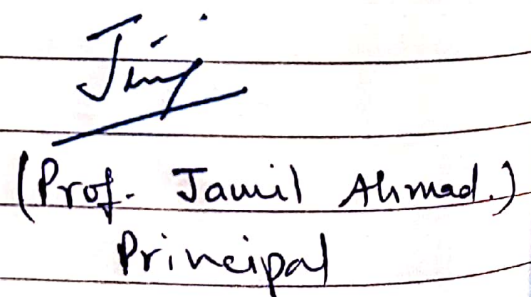 (Prof. Jamil Ahmad.)
Principal